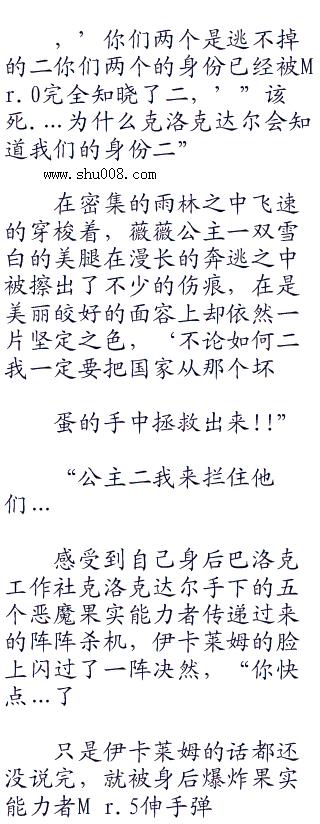 ，’你们两个是逃不掉
的二你们两个的身份已经被M
r.0完全知晓了二，’”该
死....为什么克洛克达尔会知
道我们的身份二”
www.shu008.com
在密集的雨林之中飞速
的穿梭着，薇薇公主一双雪
白的美腿在漫长的奔逃之中
被擦出了不少的伤痕，在是
美丽皎好的面容上却依然一
片坚定之色，‘不论如何二
我一定要把国家从那个坏
蛋的手中拯救出来!!”
“公主二我来拦住他
们...
感受到自己身后巴洛克
工作社克洛克达尔手下的五
个恶魔果实能力者传递过来
的阵阵杀机，伊卡莱姆的脸
上闪过了一阵决然，“你快
点...了
只是伊卡莱姆的话都还
没说完，就被身后爆炸果实
能力者M r.5伸手弹